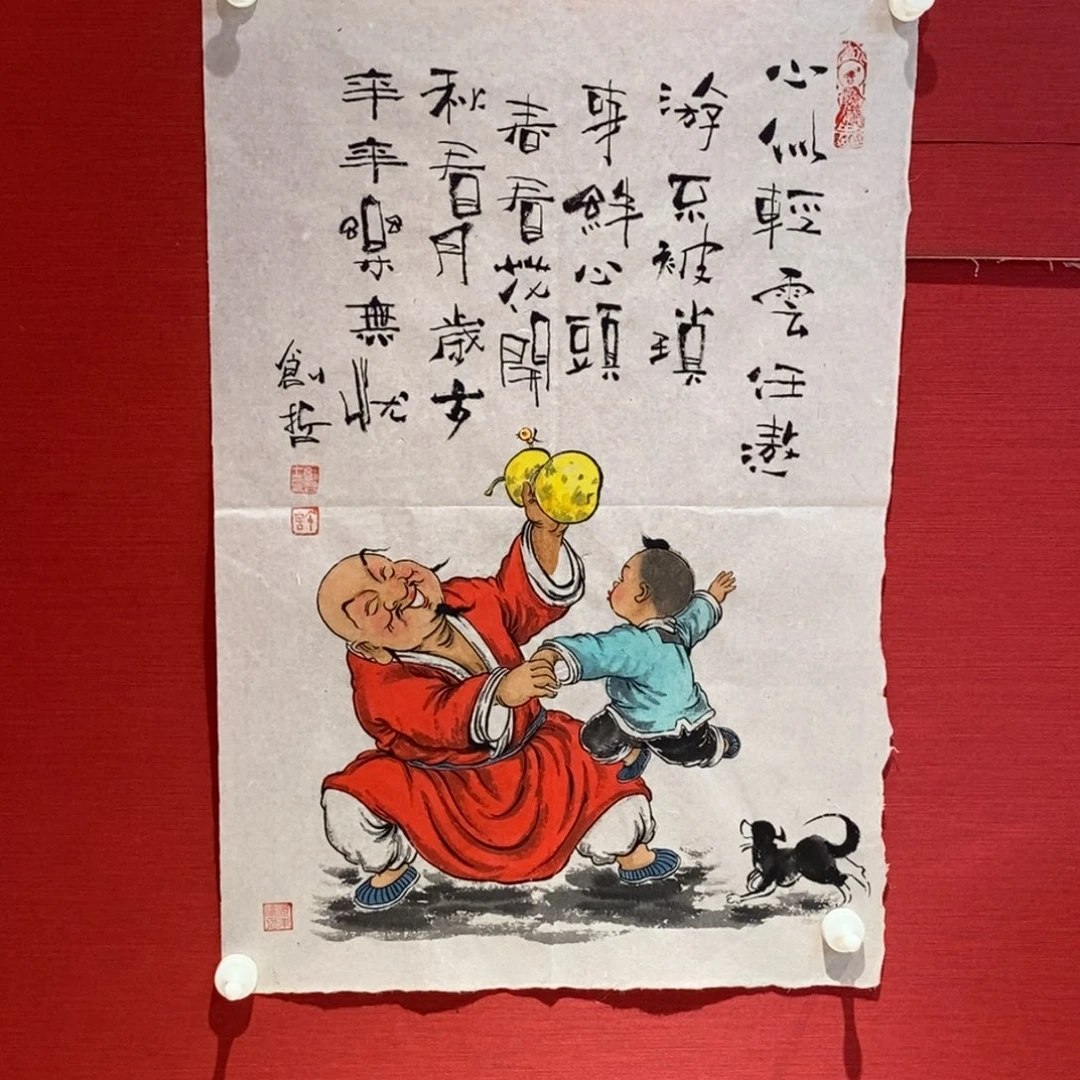 心似輕雲任遨
游不被瑣
事絆心頭
春看花開
秋看月歲
年年樂無忧
創哲